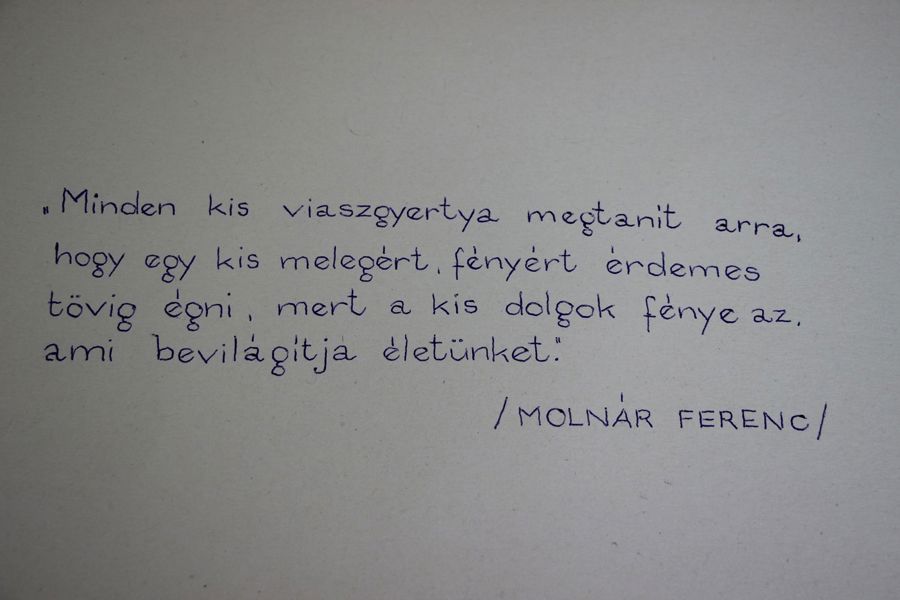 „Minden kis viaszgyertya megtanít arra,
hogy egy kis melegért, fényért érdemes
tövig égni, mert a kis dolgok fénye az,
ami bevilágítja életünket."
/MOLNÁR FERENC/